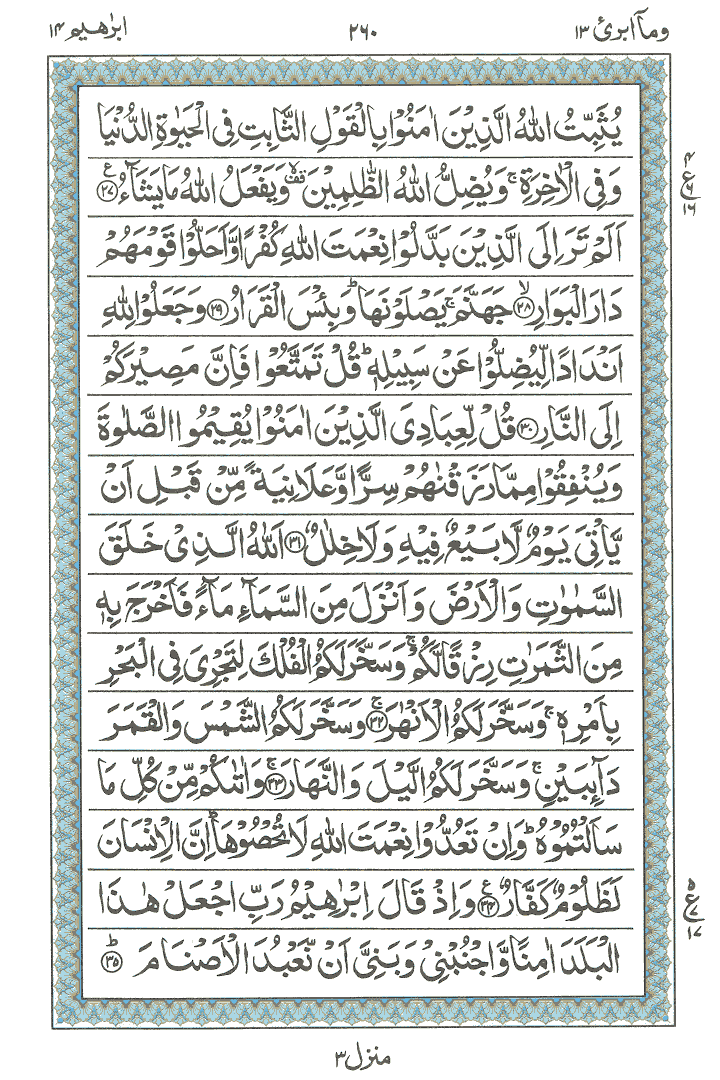 وماۤ ابرئ ١٣ ٢٦٠ ابرٰهيم ١٤
يُثَبِّتُ اللّٰهُ الَّذِيْنَ اٰمَنُوْا بِالْقَوْلِ الثَّابِتِ فِي الْحَيٰوةِ الدُّنْيَا
وَفِي الْاٰخِرَةِ ۚ وَيُضِلُّ اللّٰهُ الظّٰلِمِيْنَ ۙ۫ وَيَفْعَلُ اللّٰهُ مَا يَشَآءُ ࣖ ﴿٢٧﴾
٤
ع
٦
١٦
اَلَمْ تَرَ اِلَى الَّذِيْنَ بَدَّلُوْا نِعْمَتَ اللّٰهِ كُفْرًا وَّاَحَلُّوْا قَوْمَهُمْ
دَارَ الْبَوَارِ ۙ﴿٢٨﴾ جَهَنَّمَ ۚ يَصْلَوْنَهَا ؕ وَبِئْسَ الْقَرَارُ ﴿٢٩﴾ وَجَعَلُوْا لِلّٰهِ
اَنْدَادًا لِّيُضِلُّوْا عَنْ سَبِيْلِهٖ ؕ قُلْ تَمَتَّعُوْا فَاِنَّ مَصِيْرَكُمْ
اِلَى النَّارِ ﴿٣٠﴾ قُلْ لِّعِبَادِيَ الَّذِيْنَ اٰمَنُوْا يُقِيْمُوا الصَّلٰوةَ
وَيُنْفِقُوْا مِمَّا رَزَقْنٰهُمْ سِرًّا وَّعَلَانِيَةً مِّنْ قَبْلِ اَنْ
يَّاْتِيَ يَوْمٌ لَّا بَيْعٌ فِيْهِ وَلَا خِلٰلٌ ﴿٣١﴾ اَللّٰهُ الَّذِيْ خَلَقَ
السَّمٰوٰتِ وَالْاَرْضَ وَاَنْزَلَ مِنَ السَّمَآءِ مَآءً فَاَخْرَجَ بِهٖ
مِنَ الثَّمَرٰتِ رِزْقًا لَّكُمْ ۚ وَسَخَّرَ لَكُمُ الْفُلْكَ لِتَجْرِيَ فِي الْبَحْرِ
بِاَمْرِهٖ ۚ وَسَخَّرَ لَكُمُ الْاَنْهٰرَ ۚ﴿٣٢﴾ وَسَخَّرَ لَكُمُ الشَّمْسَ وَالْقَمَرَ
دَآئِبَيْنِ ۚ وَسَخَّرَ لَكُمُ الَّيْلَ وَالنَّهَارَ ۚ﴿٣٣﴾ وَاٰتٰىكُمْ مِّنْ كُلِّ مَا
سَاَلْتُمُوْهُ ؕ وَاِنْ تَعُدُّوْا نِعْمَتَ اللّٰهِ لَا تُحْصُوْهَا ؕ اِنَّ الْاِنْسَانَ
لَظَلُوْمٌ كَفَّارٌ ࣖ ﴿٣٤﴾ وَاِذْ قَالَ اِبْرٰهِيْمُ رَبِّ اجْعَلْ هٰذَا
٥
ع
٧
١٧
الْبَلَدَ اٰمِنًا وَّاجْنُبْنِيْ وَبَنِيَّ اَنْ نَّعْبُدَ الْاَصْنَامَ ؕ﴿٣٥﴾
منزل ٣